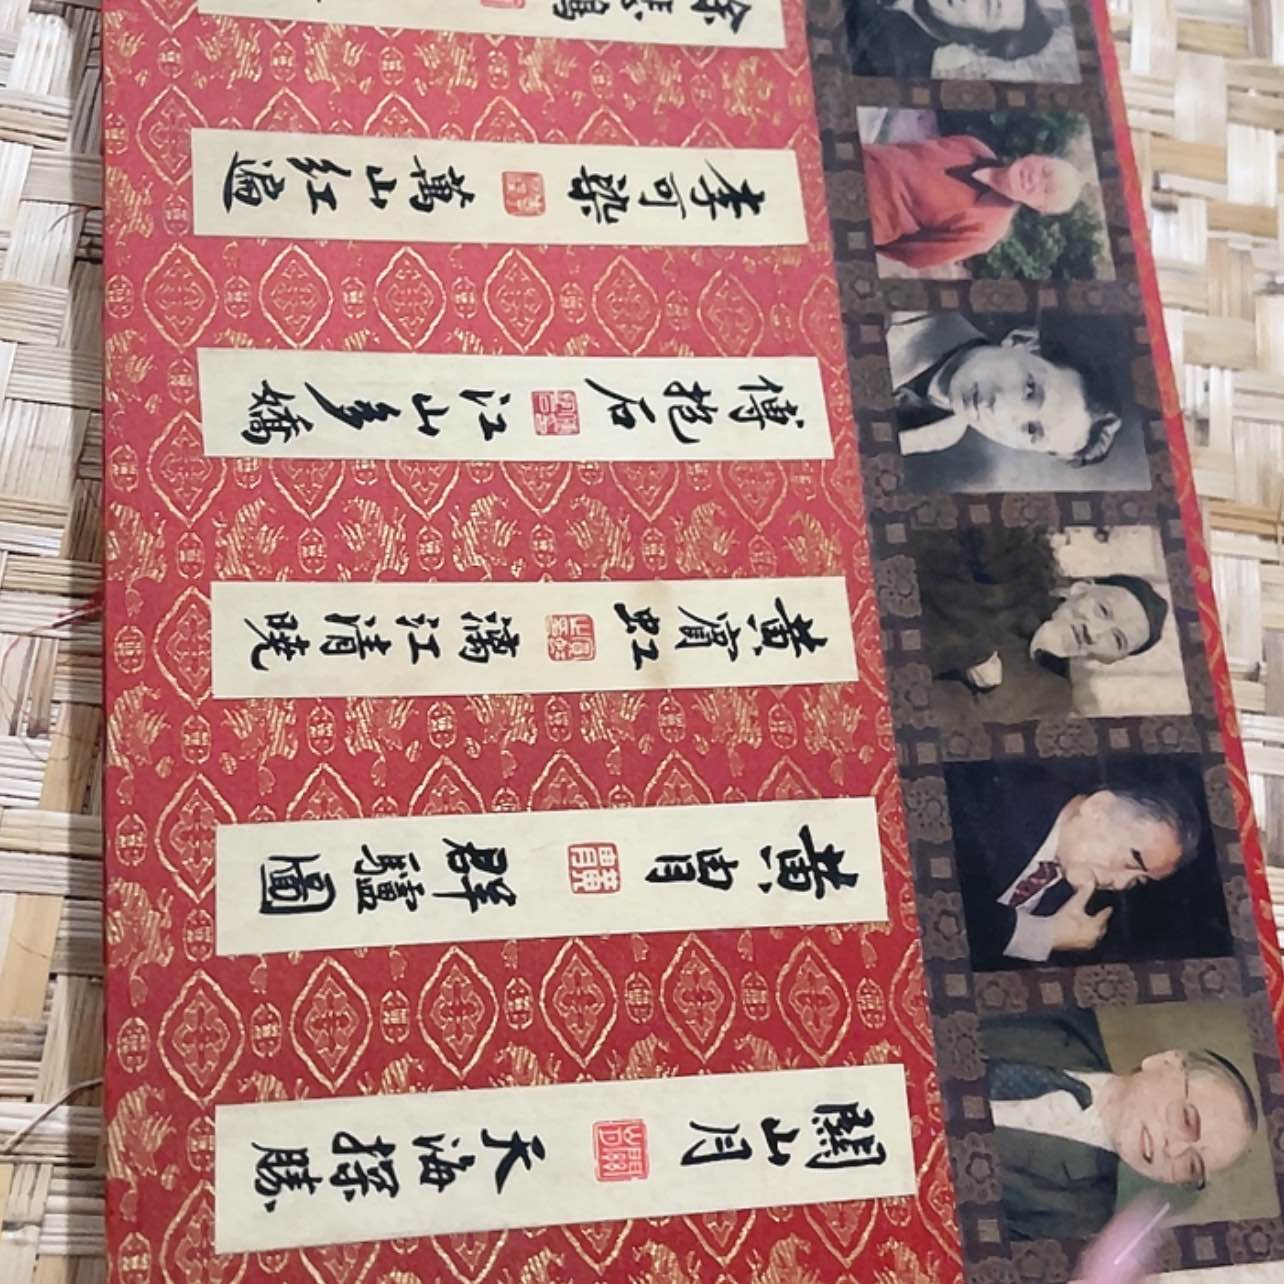 關山月 天海探勝
黄胄 黄胄 群驢圖
黄賓虹 漓江清曉
傅抱石 江山多嬌
李可染 萬山红遍